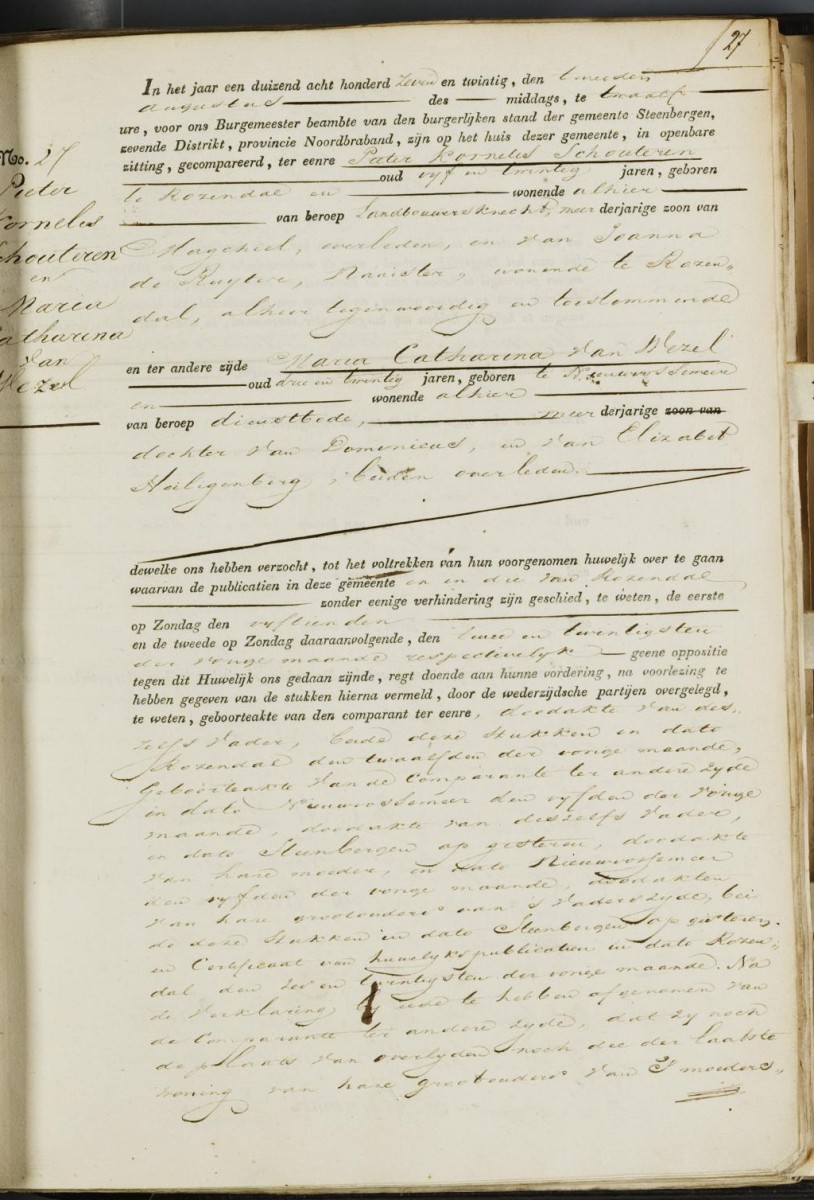 27
In het jaar een duizend acht honderd zeven en twintig, den tweeden
augustus des middags, te twaalf
ure, voor ons Burgemeester beambte van den burgerlijken stand der gemeente Steenbergen,
zevende Distrikt, provincie Noordbraband, zijn op het huis dezer gemeente, in openbare
zitting, gecompareerd, ter eenre Pieter Kornelis Schouteren
oud vyf en twintig jaren, geboren
te Rozendal en wonende alhier
van beroep Landbouwersknecht, meer derjarige zoon van
Magchiel, overleden, en van Joanna
de Ruyter, Naaister, wonende te Rozen„
dal, alhier tegenwoordig en toestemmende
No. 27
Pieter
Kornelis
Schouteren
en
Maria
Catharina
Van
Wezel
en ter andere zijde Maria Catharina Van Wezel
oud drie en twintig jaren, geboren te Nieuwvossemeer
en wonende alhier
van beroep dienstbode, meer derjarige zoon van
dochter van Domenicus, en van Elizabet
Heiligenberg, beiden overleden.
dewelke ons hebben verzocht, tot het voltrekken van hun voorgenomen huwelijk over te gaan
waarvan de publicatien in deze gemeente en in die van Rozendal,
zonder eenige verhindering zijn geschied, te weten, de eerste
op Zondag den vyftienden
en de tweede op Zondag daaraanvolgende, den twee en twintigsten
der vorige maande respectivelyk geene oppositie
tegen dit Huwelijk ons gedaan zijnde, regt doende aan hunne vordering, na voorlezing te
hebben gegeven van de stukken hierna vermeld, door de wederzijdsche partijen overgelegd,
te weten, geboorteakte van den comparant ter eenre, doodakte van des„
zelfs vader, beide deze stukken in dato
Rozendal den twaalfden der vorige maande,
Geboorteakte van de Comparante ter andere zyde
in dato Nieuwvossemeer den vyfden der vorige
maande, doodakte van deszelfs vader,
in dato Steenbergen op gisteren, doodakte
van hare moeder, in dato Nieuwvossemeer
den vyfden der vorige maande, doodakten
van hare grootouders van 's vaders zyde, bei
de deze stukken in dato Steenbergen op gisteren.
en Certificaat van huwelykspublicatien in dato Rozen„
dal den zeven twintigsten der vorige maande. Na
de verklaring by eede te hebben afgenomen van
de Comparante ter andere zyde, dat zy noch
de plaats van overlyden noch die der laatste
woning van hare grootouders van 's moeders„